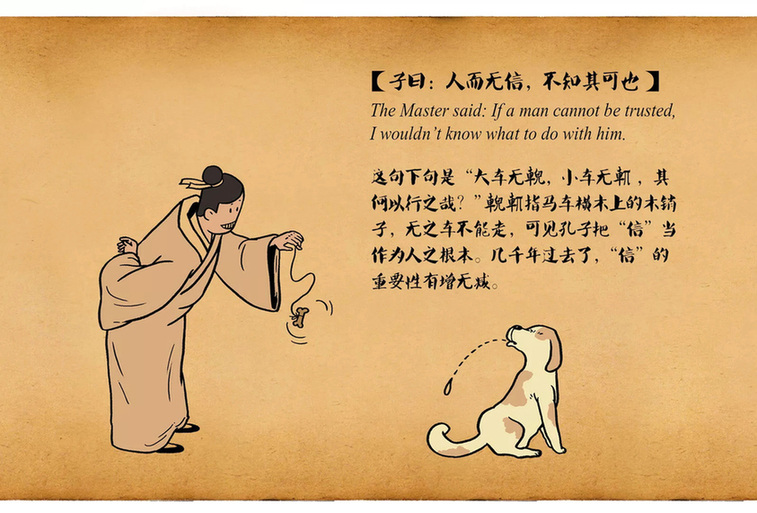 【子曰：人而无信，不知其可也】
The Master said: If a man cannot be trusted,
I wouldn't know what to do with him.
这句下句是“大车无輗，小车无軏，其
何以行之哉？”輗軏指马车横木上的木销
子，无之车不能走，可见孔子把“信”当
作为人之根本。几千年过去了，“信”的
重要性有增无减。